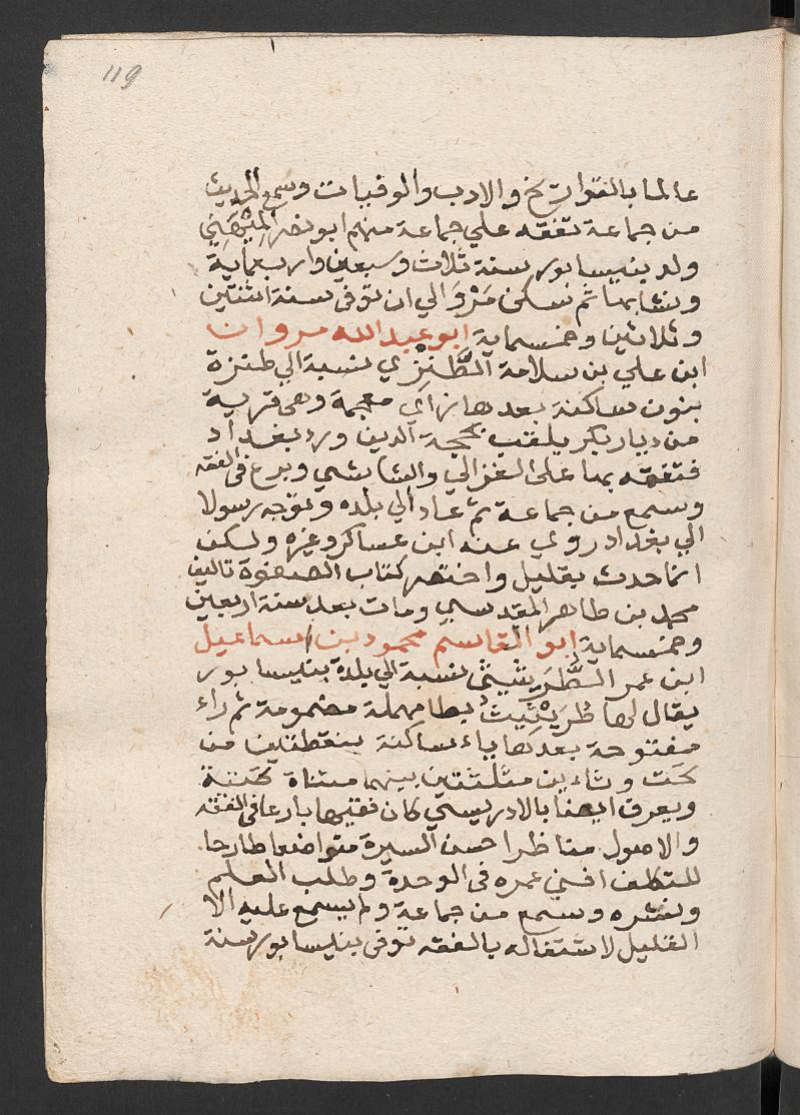 119
عالما بالتواريخ والادب والوفيات وسمع الحديث
من جماعة تفقه علي جماعة منهم ابو نصر المِيْهَنِي
ولد بنيسابور سنة ثلاث وسبعين واربعماية
ونشا بها ثم سكن مَرْوَ الي ان توفى سنة اثنتين
وثلاثين وخمسماية ابو عبد الله مروان
ابن علي بن سلامة الطَّنْزِي نسبة الي طنزة
بنون ساكنة بعدها زاي معجمة وهى قرية
من ديار بكر يلقب بحجة الدين ورد بغداد
فتفقه بها على الغزالي والشاشي وبرع فى الفقه
وسمع من جماعة ثم عاد الي بلده وتوجه رسولا
الي بغداد روي عنه ابن عساكر وغيره ولكن
انما حدث بقليل واختصر كتاب الصفوة تاليف
محمد بن طاهر المقدسي ومات بعد سنة اربعين
وخمسماية ابو القاسم محمود بن اسماعيل
ابن عمر الطُّرَيثيثى نسبة الي بلدة بنيسابور
يقال لها طُرَيْثِيثُ بطا مهملة مضمومة ثم راء
مفتوحة بعدها ياء ساكنة بنقطتين من
تحت وثاءين مثلثتين بينهما مثناة تحتية
ويعرف ايضا بالادريسي كان فقيها بارعا فى الفقه
والاصول مناظرا حسن السيرة متواضعا طارحا
للتكلف افني عمره فى الوحدة وطلب العلم
ونشره وسمع من جماعة ولم يسمع عليه الا
القليل لاشتغاله بالفقه توفى بنيسابور سنة